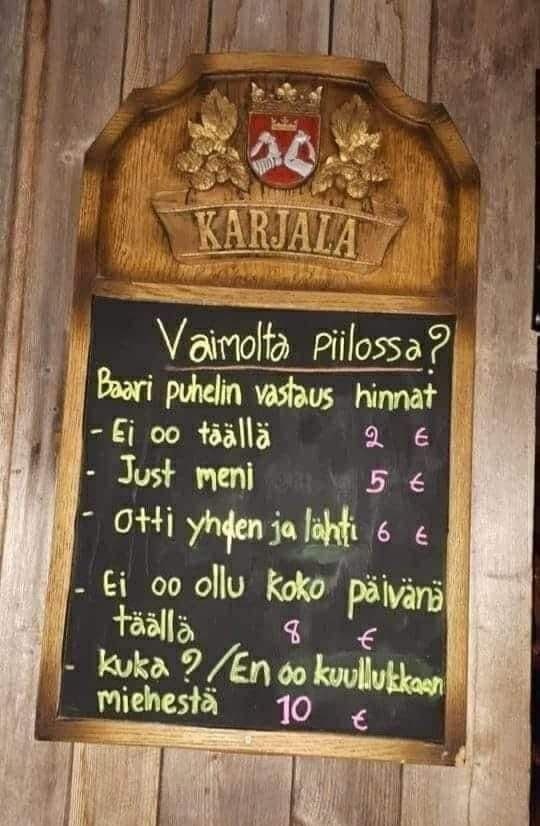 KARJALA
Vaimolta piilossa?
Baari puhelin vastaus hinnat
- Ei oo täällä 2 €
- Just meni 5 €
- Otti yhden ja lähti 6 €
- Ei oo ollu koko päivänä
täällä 8 €
- Kuka? / En oo kuullukkaan
miehestä 10 €